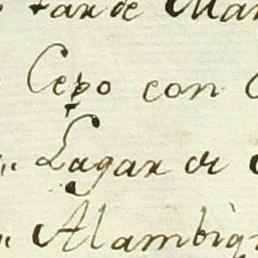 tarde Mar
Cepo con
Lagar de
Alambiq